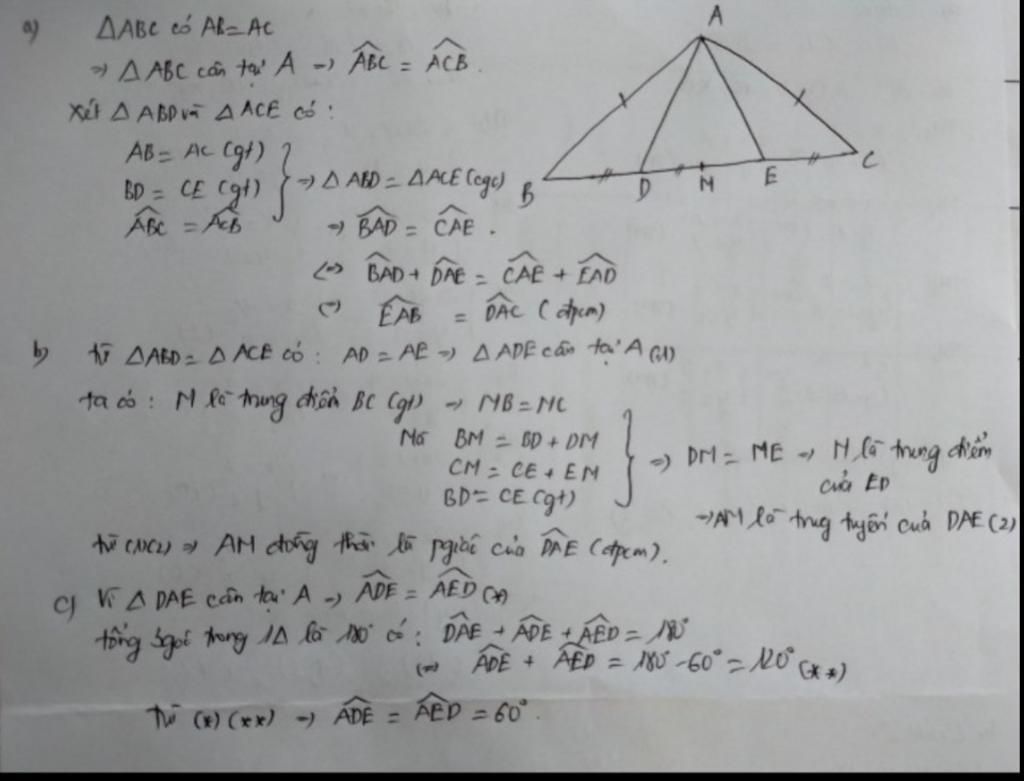 a) △ABC có AB=AC
=> △ABC cân tại A => ABC = ACB.
xét △ABD và △ACE có:
AB = AC (gt)
BD = CE (gt) => △ABD = △ACE (cgc)
ABC = ACB => BAD = CAE.
<=> BAD + DAE = CAE + EAD
<=> EAB = DAC (đpcm)
A
B D M E C
b) từ △ABD = △ACE có: AD = AE => △ADE cân tại A (1)
ta có: M là trung điểm BC (gt) => MB = MC
Mà BM = BD + DM
CM = CE + EM => DM = ME => M là trung điểm
BD = CE (gt) của ED
=> AM là trug tuyến cuả DAE (2)
từ (1)(2) => AM đồng thời là pgiác của DAE (đpcm).
c) Vì △DAE cân tại A => ADE = AED (*)
tổng 3góc trong 1△ là 180° có: DAE + ADE + AED = 180°
<=> ADE + AED = 180° - 60° = 120° (**)
Từ (*) (**) => ADE = AED = 60°.